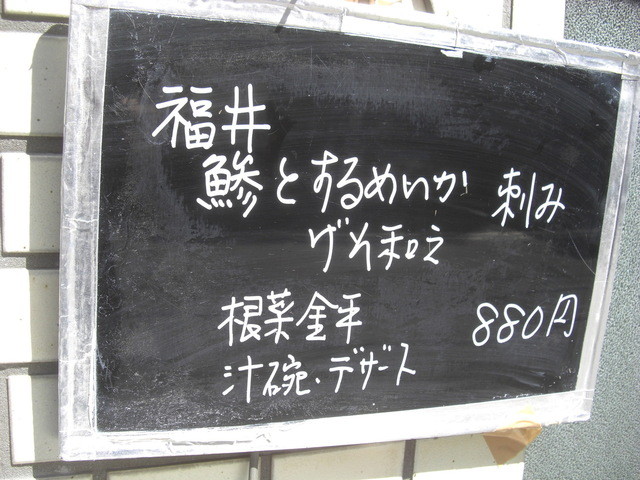 福井
鯵とするめいか 刺み
げそ和え
根菜金平 880円
汁碗、デザート